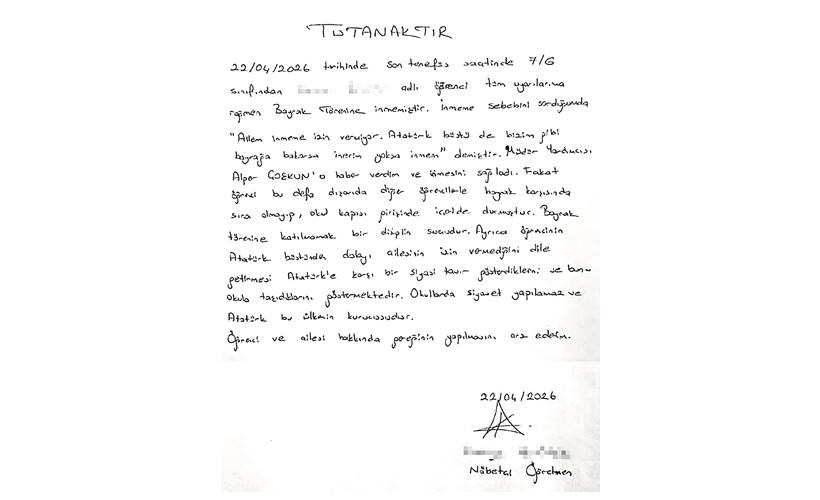 TUTANAKTIR
22/04/2026 tarihinde son teneffüs saatinde 7/G
sınıfından adlı öğrenci tüm uyarılarıma
rağmen Bayrak Törenine inmemiştir. İnmeme sebebini sorduğumda
"Ailem inmeme izin vermiyor. Atatürk büstü de bizim gibi
bayrağa bakarsa inerim yoksa inmem" demiştir. Müdür Yardımcısı
Alper COŞKUN'a haber verdim ve inmesini sağladı. Fakat
öğrenci bu defa dışarıda diğer öğrencilerle bayrak karşısında
sıra olmayıp, okul kapısı girişinde içeride durmuştur. Bayrak
törenine katılmamak bir disiplin suçudur. Ayrıca öğrencinin
Atatürk büstünden dolayı ailesinin izin vermediğini dile
getirmesi Atatürk'e karşı bir siyasi tavır gösterdiklerini ve bunu
okula taşıdıklarını göstermektedir. Okullarda siyaset yapılamaz ve
Atatürk bu ülkenin kurucusudur.
Öğrenci ve ailesi hakkında gereğinin yapılmasını arz ederim.
22/04/2026
Nöbetçi Öğretmen